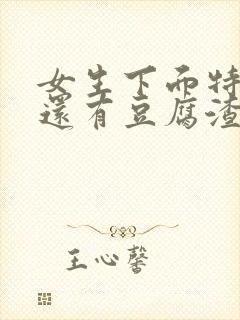 女生下面特
還有豆腐渣
王心馨